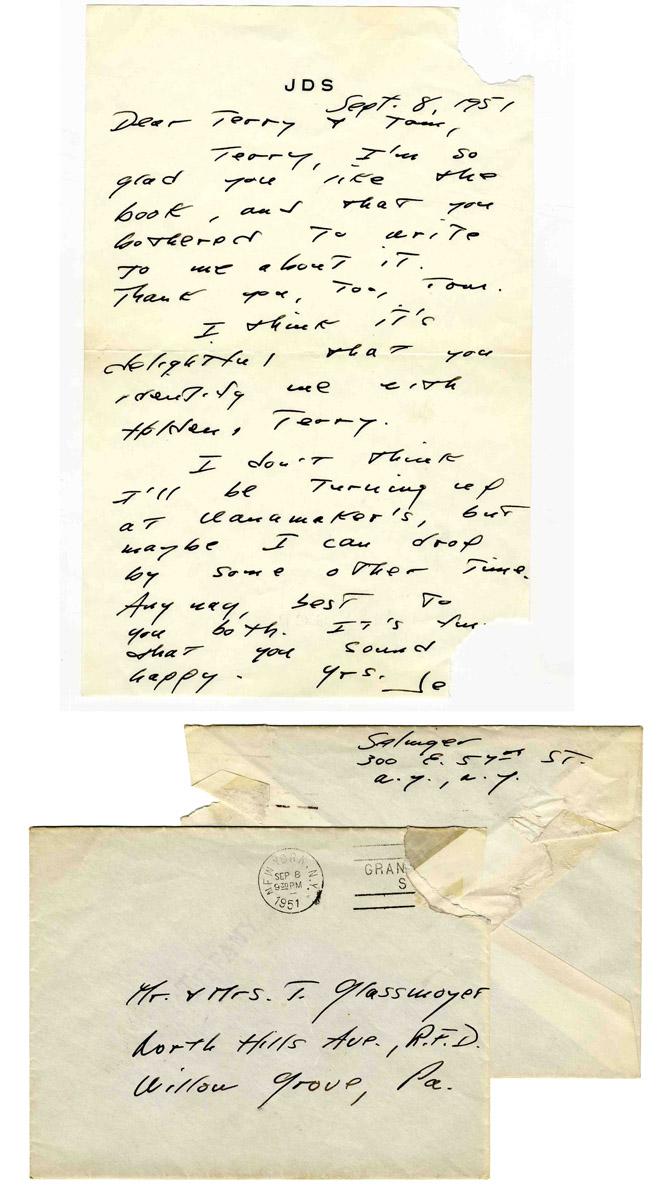 JDS
Sept. 8, 1951
Dear Terry & Tom,
Terry, I'm so
glad you like the
book, and that you
bothered to write
to me about it.
Thank you, too, Tom.
I think it's
delightful that you
identify me with
Holden, Terry.
I don't think
I'll be turning up
at Wanamaker's, but
maybe I can drop
by some other time.
Anyway, best to
you both. It's fun
that you sound
happy. Yrs. Je
Salinger
300 E. 57th St.
N.Y., N.Y.
NEW YORK, N.Y.
SEP 8
930 PM
1951
GRAN
S
Mr. & Mrs. T. Glassmoyer
North Hills Ave., R.F.D.
Willow Grove, Pa.